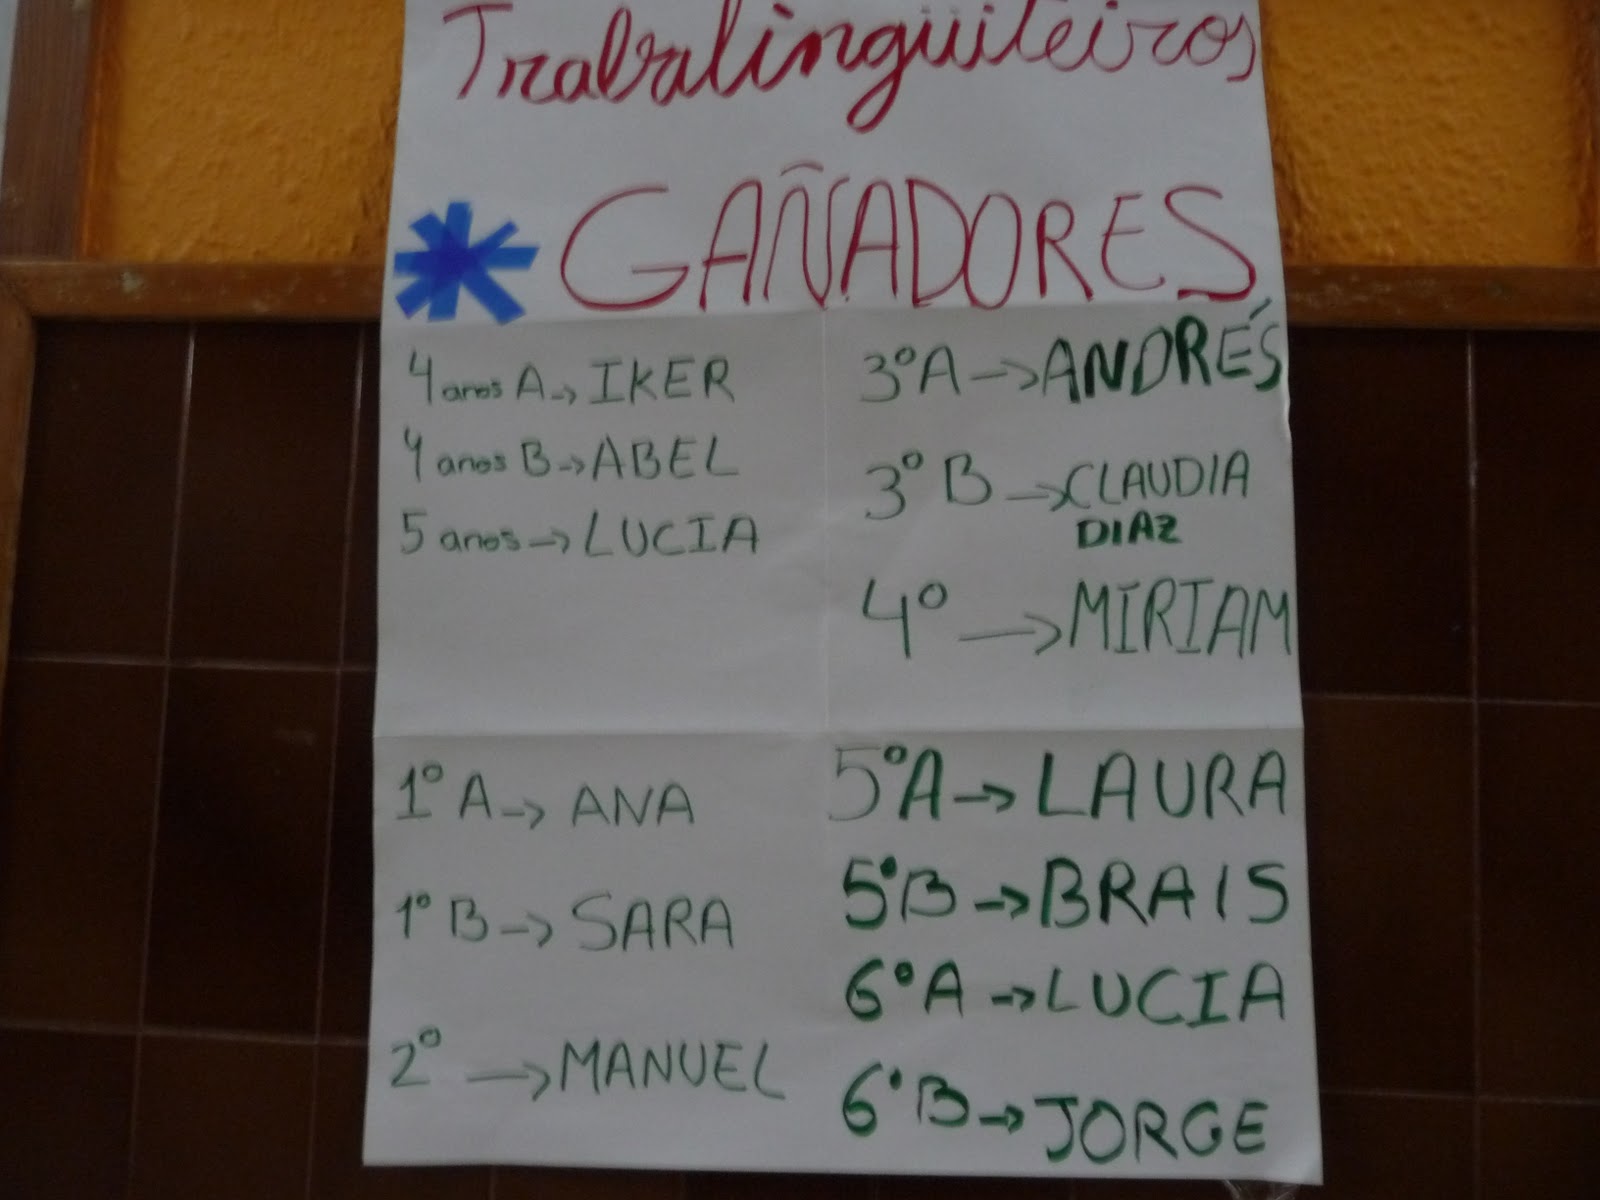 Trabalingüiteiros
GAÑADORES
4 anos A -> IKER
4 anos B -> ABEL
5 anos -> LUCIA
1º A -> ANA
1º B -> SARA
2º -> MANUEL
3º A -> ANDRÉS
3º B -> CLAUDIA
DIAZ
4º -> MIRIAM
5º A -> LAURA
5º B -> BRAIS
6º A -> LUCIA
6º B -> JORGE